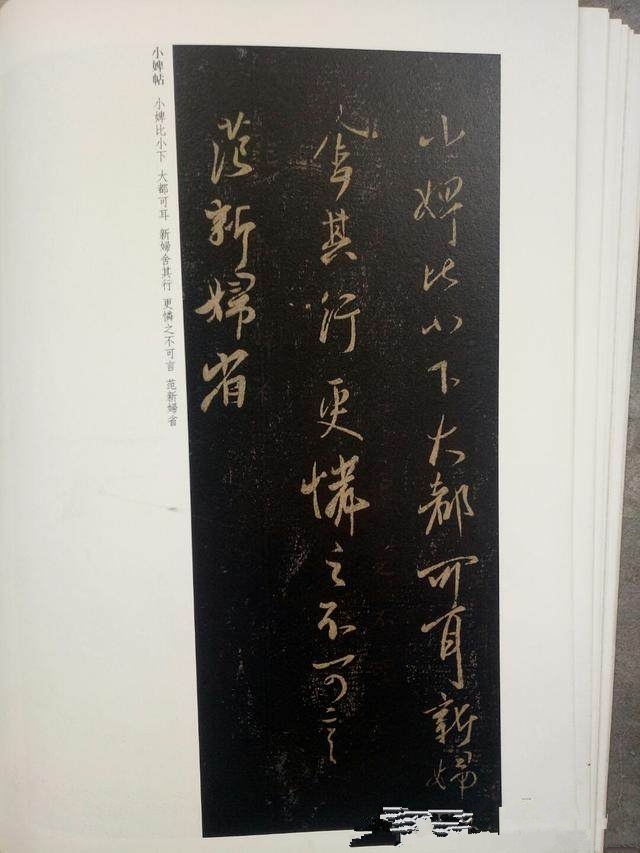 小婢比小下大都可耳新婦
舍其行更憐之不可言
范新婦省
小婢帖 小婢比小下 大都可耳 新婦舍其行 更憐之不可言 范新婦省